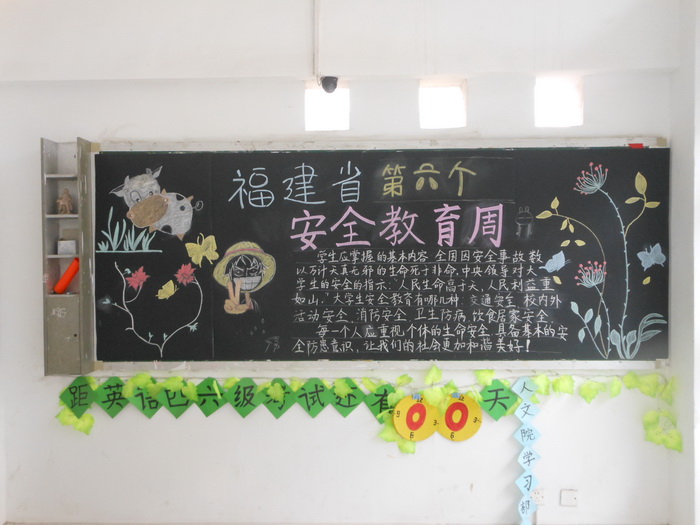 福建省第六个
安全教育周
学生应掌握的基本内容 全国因安全事故数
以万计天真无邪的生命死于非命,中央领导对大
学生的安全的指示:"人民生命高于天,人民利益重
如山."大学生安全教育有哪几种:交通安全 校内外
活动安全 消防安全 卫生防病 饮食居家安全
每一个人应重视个体的生命安全,具备基本的安
全防患意识,让我们的社会更加和谐美好!
距英语四六级考试还有00天
人文院学习部